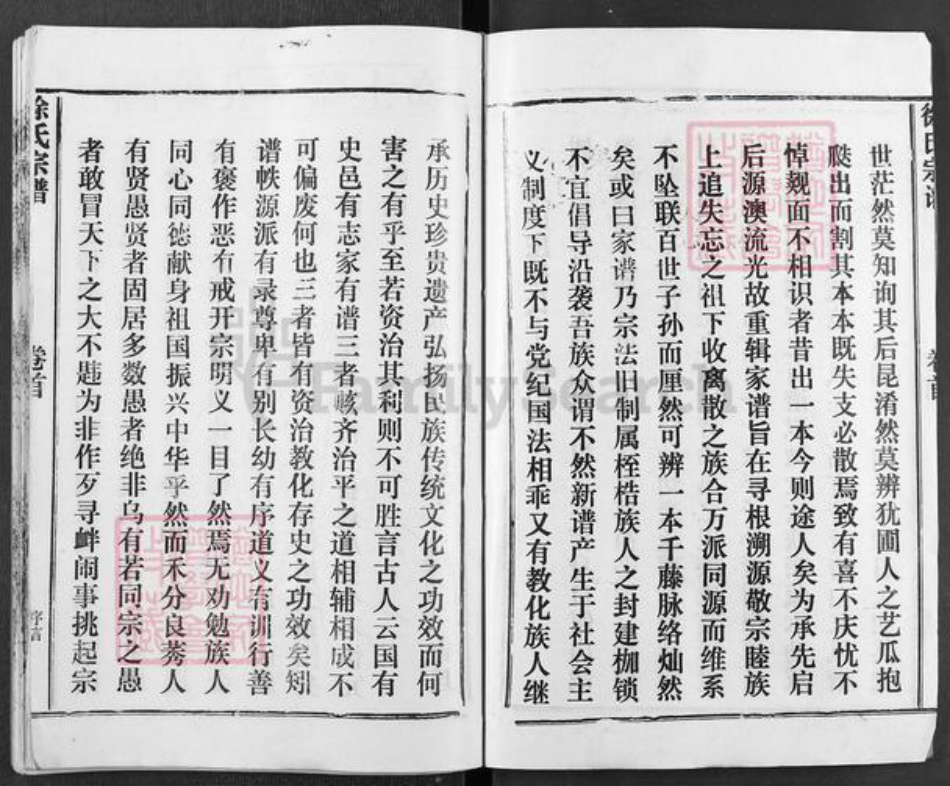 世茫然莫知询其后昆淆然莫辨犹圃人之艺瓜抱
瓞出而割其本本既失支必散焉致有喜不庆忧不
悼觌面不相识者昔出一本今则途人矣为承先启
后源澳流光故重辑家谱旨在寻根溯源敬宗睦族
上追失忘之祖下收离散之族合万派同源而维系
不坠联百世子孙而厘然可辨一本千藤脉络灿然
矣或曰家谱乃宗法旧制属桎梏族人之封建枷锁
不宜倡导沿袭吾族众谓不然新谱产生于社会主
义制度下既不与党纪国法相乖又有教化族人继
承历史珍贵遗产弘扬民族传统文化之功效而何
害之有乎至若资治其利则不可胜言古人云国有
史邑有志家有谱三者赅齐治平之道相辅相成不
可偏废何也三者皆有资治教化存史之功效矣矧
谱帙源派有录尊卑有别长幼有序道义有训行善
有褒作恶有戒开宗明义一目了然焉无劝勉族人
同心同德献身祖国振兴中华乎然而不分良莠人
有贤愚贤者固居多数愚者绝非乌有若同宗之愚
者敢冒天下之大不韪为非作歹寻衅闹事挑起宗
徐氏宗谱
卷首
序言
FamilySearch